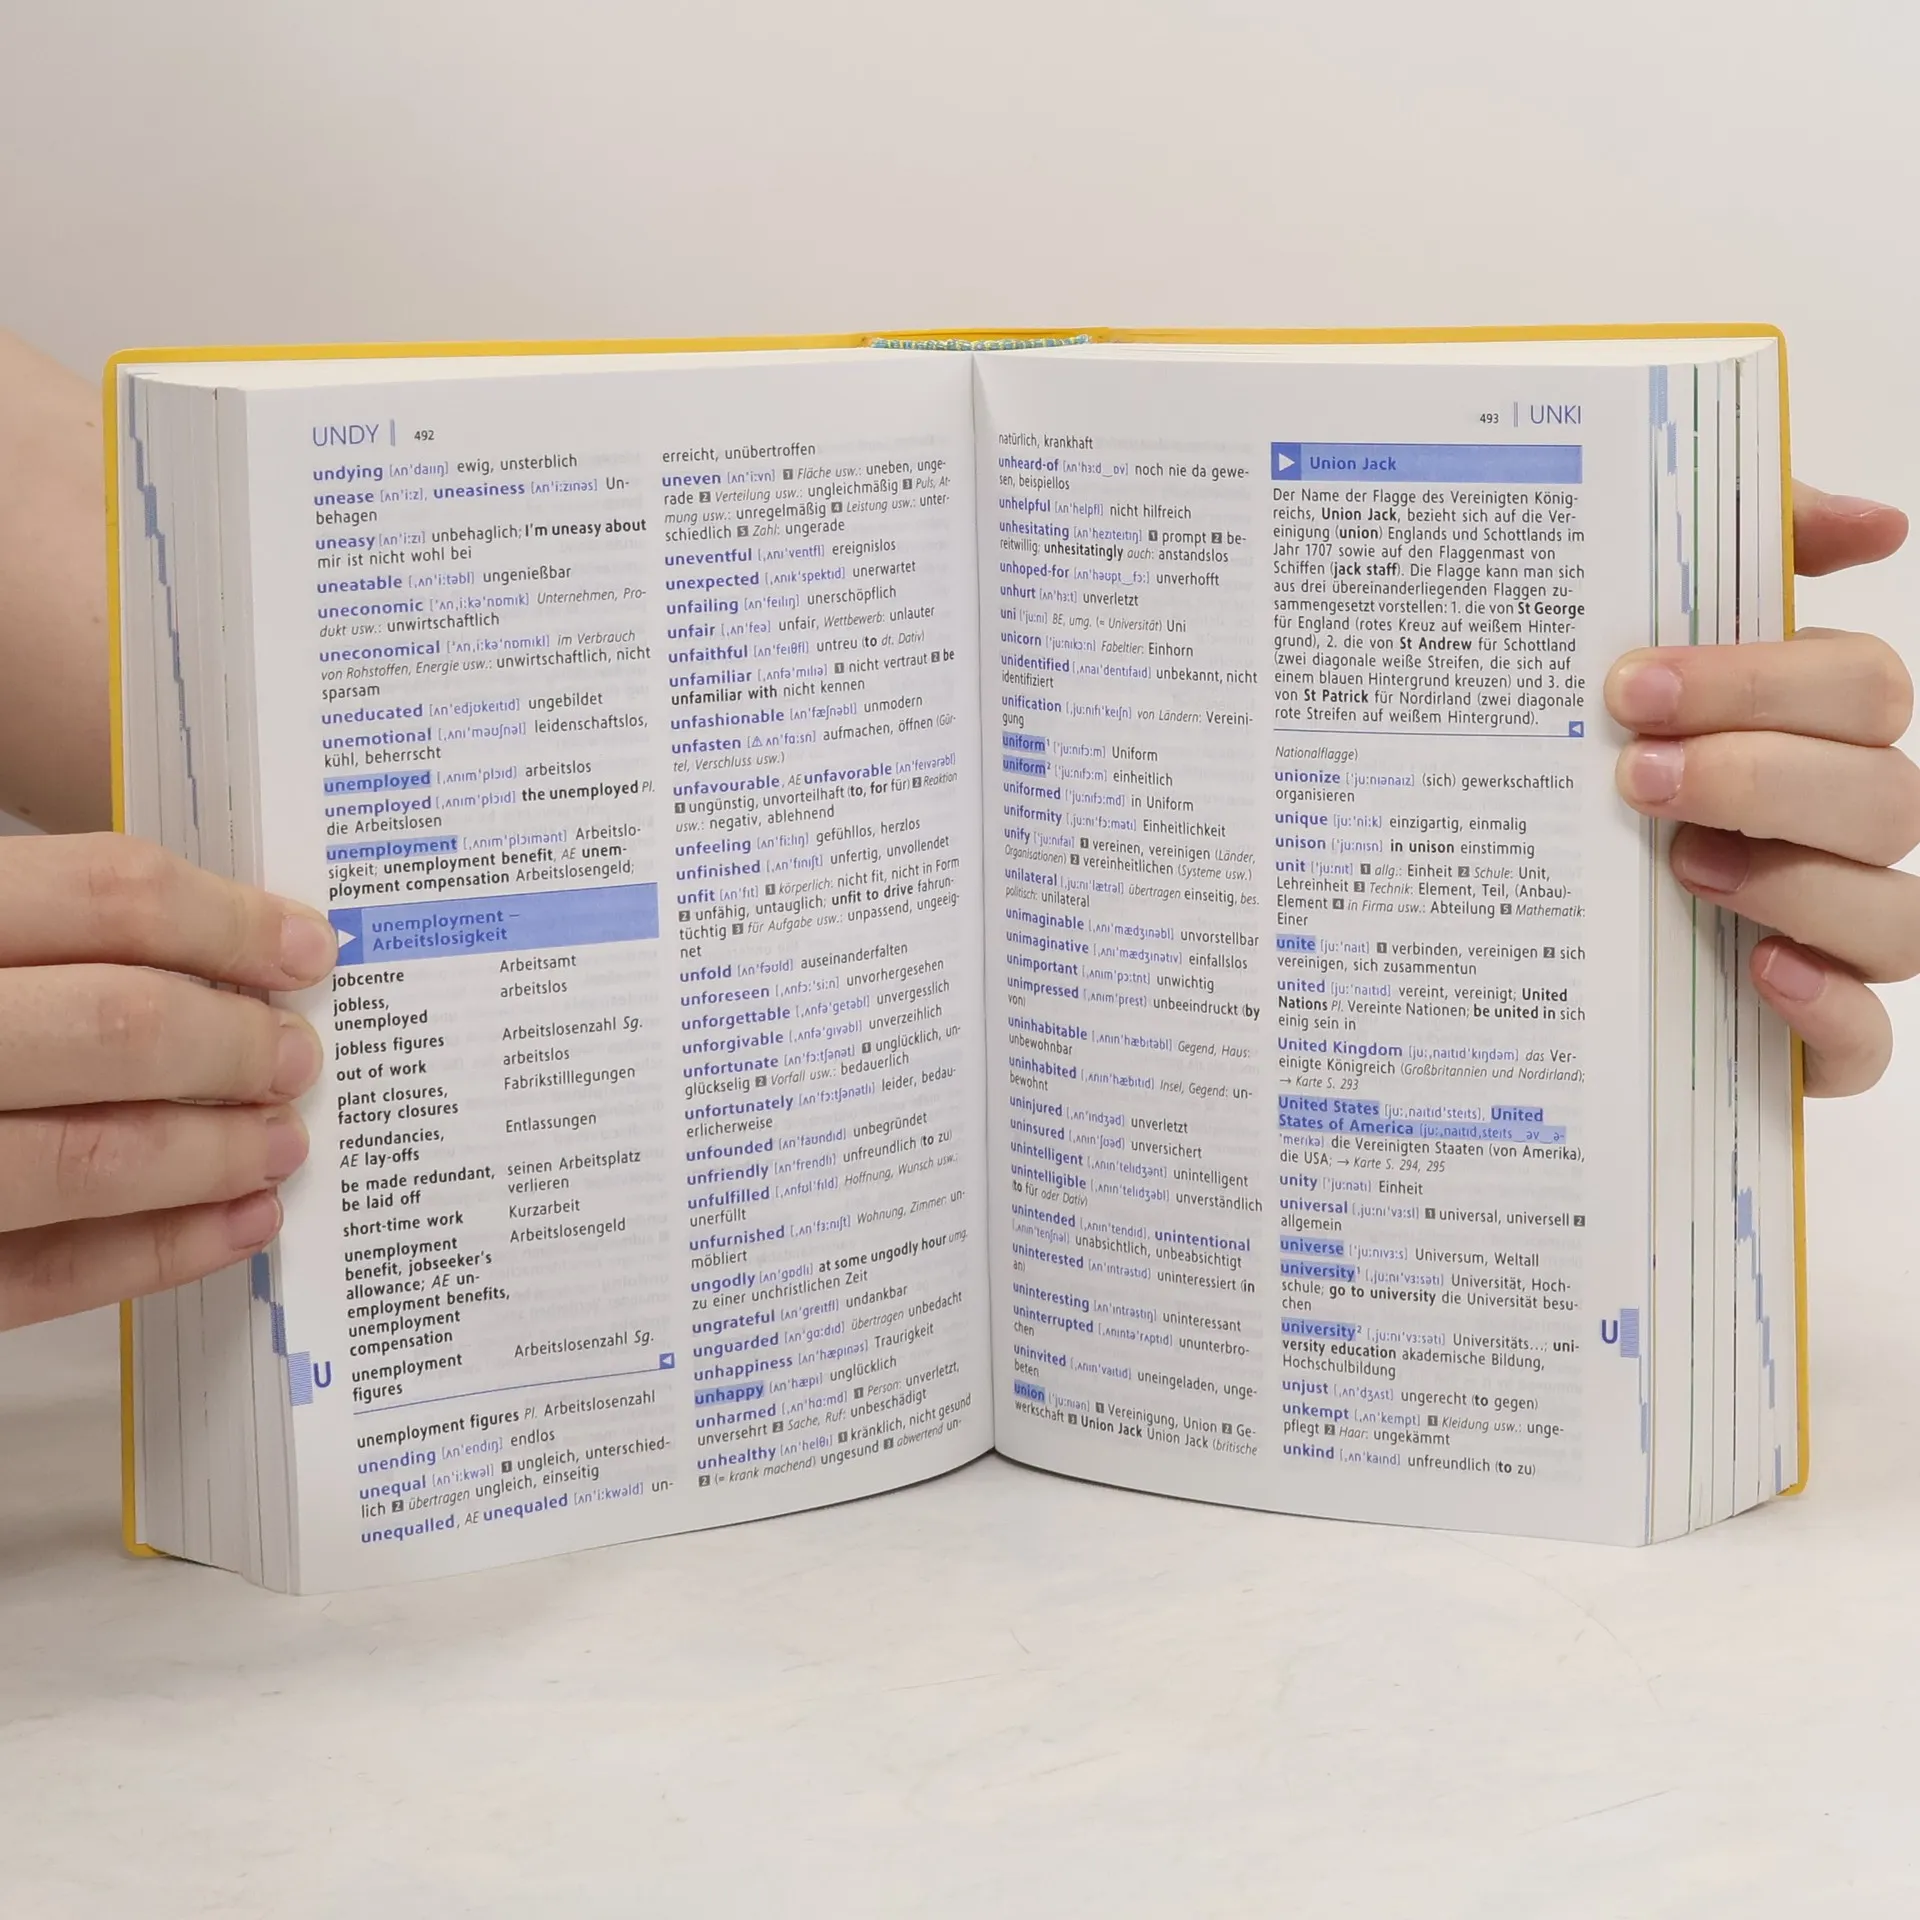 UNDY 492
undying [ʌnˈdaɪɪŋ] ewig, unsterblich
unease [ʌnˈiːz], uneasiness [ʌnˈiːzɪnəs] Un-
behagen
uneasy [ʌnˈiːzɪ] unbehaglich; I'm uneasy about
mir ist nicht wohl bei
uneatable [ˌʌnˈiːtəbl] ungenießbar
uneconomic [ˈʌnˌiːkəˈnɒmɪk] Unternehmen, Pro-
dukt usw.: unwirtschaftlich
uneconomical [ˈʌnˌiːkəˈnɒmɪkl] im Verbrauch
von Rohstoffen, Energie usw.: unwirtschaftlich, nicht
sparsam
uneducated [ʌnˈedjʊkeɪtɪd] ungebildet
unemotional [ˌʌnɪˈməʊʃnəl] leidenschaftslos,
kühl, beherrscht
unemployed [ˌʌnɪmˈplɔɪd] arbeitslos
unemployed [ˌʌnɪmˈplɔɪd] the unemployed Pl.
die Arbeitslosen
unemployment [ˌʌnɪmˈplɔɪmənt] Arbeitslo-
sigkeit; unemployment benefit, AE unem-
ployment compensation Arbeitslosengeld;
unemployment –
Arbeitslosigkeit
jobcentre Arbeitsamt
jobless, arbeitslos
unemployed
jobless figures Arbeitslosenzahl Sg.
out of work arbeitslos
plant closures, Fabrikstilllegungen
factory closures
redundancies, Entlassungen
AE lay-offs
be made redundant, seinen Arbeitsplatz
be laid off verlieren
short-time work Kurzarbeit
unemployment Arbeitslosengeld
benefit, jobseeker's
allowance; AE un-
employment benefits,
unemployment
compensation
unemployment Arbeitslosenzahl Sg.
figures
unemployment figures Pl. Arbeitslosenzahl
unending [ʌnˈendɪŋ] endlos
unequal [ʌnˈiːkwəl] 1 ungleich, unterschied-
lich 2 übertragen ungleich, einseitig
unequalled, AE unequaled [ʌnˈiːkwəld] un-
U
erreicht, unübertroffen
uneven [ʌnˈiːvn] 1 Fläche usw.: uneben, unge-
rade 2 Verteilung usw.: ungleichmäßig 3 Puls, At-
mung usw.: unregelmäßig 4 Leistung usw.: unter-
schiedlich 5 Zahl: ungerade
uneventful [ˌʌnɪˈventfl] ereignislos
unexpected [ˌʌnɪkˈspektɪd] unerwartet
unfailing [ʌnˈfeɪlɪŋ] unerschöpflich
unfair [ˌʌnˈfeə] unfair, Wettbewerb: unlauter
unfaithful [ʌnˈfeɪθfl] untreu (to dt. Dativ)
unfamiliar [ˌʌnfəˈmɪlɪə] 1 nicht vertraut 2 be
unfamiliar with nicht kennen
unfashionable [ʌnˈfæʃnəbl] unmodern
unfasten [⚠ ʌnˈfɑːsn] aufmachen, öffnen (Gür-
tel, Verschluss usw.)
unfavourable, AE unfavorable [ʌnˈfeɪvərəbl]
1 ungünstig, unvorteilhaft (to, for für) 2 Reaktion
usw.: negativ, ablehnend
unfeeling [ʌnˈfiːlɪŋ] gefühllos, herzlos
unfinished [ˌʌnˈfɪnɪʃt] unfertig, unvollendet
unfit [ʌnˈfɪt] 1 körperlich: nicht fit, nicht in Form
2 unfähig, untauglich; unfit to drive fahrun-
tüchtig 3 für Aufgabe usw.: unpassend, ungeeig-
net
unfold [ʌnˈfəʊld] auseinanderfalten
unforeseen [ˌʌnfɔːˈsiːn] unvorhergesehen
unforgettable [ˌʌnfəˈgetəbl] unvergesslich
unforgivable [ˌʌnfəˈgɪvəbl] unverzeihlich
unfortunate [ʌnˈfɔːtʃənət] 1 unglücklich, un-
glückselig 2 Vorfall usw.: bedauerlich
unfortunately [ʌnˈfɔːtʃənətlɪ] leider, bedau-
erlicherweise
unfounded [ʌnˈfaʊndɪd] unbegründet
unfriendly [ʌnˈfrendlɪ] unfreundlich (to zu)
unfulfilled [ˌʌnfʊlˈfɪld] Hoffnung, Wunsch usw.:
unerfüllt
unfurnished [ˌʌnˈfɜːnɪʃt] Wohnung, Zimmer: un-
möbliert
ungodly [ʌnˈgɒdlɪ] at some ungodly hour umg.
zu einer unchristlichen Zeit
ungrateful [ʌnˈgreɪtfl] undankbar
unguarded [ʌnˈgɑːdɪd] übertragen unbedacht
unhappiness [ʌnˈhæpɪnəs] Traurigkeit
unhappy [ʌnˈhæpɪ] unglücklich
unharmed [ˌʌnˈhɑːmd] 1 Person: unverletzt,
unversehrt 2 Sache, Ruf: unbeschädigt
unhealthy [ʌnˈhelθɪ] 1 kränklich, nicht gesund
2 (= krank machend) ungesund 3 abwertend un-
493 UNKI
natürlich, krankhaft
unheard-of [ʌnˈhɜːd_ɒv] noch nie da gewe-
sen, beispiellos
unhelpful [ʌnˈhelpfl] nicht hilfreich
unhesitating [ʌnˈhezɪteɪtɪŋ] 1 prompt 2 be-
reitwillig; unhesitatingly auch: anstandslos
unhoped-for [ʌnˈhəʊpt_fɔː] unverhofft
unhurt [ʌnˈhɜːt] unverletzt
uni [ˈjuːnɪ] BE, umg. (= Universität) Uni
unicorn [ˈjuːnɪkɔːn] Fabeltier: Einhorn
unidentified [ˌʌnaɪˈdentɪfaɪd] unbekannt, nicht
identifiziert
unification [ˌjuːnɪfɪˈkeɪʃn] von Ländern: Vereini-
gung
uniform¹ [ˈjuːnɪfɔːm] Uniform
uniform² [ˈjuːnɪfɔːm] einheitlich
uniformed [ˈjuːnɪfɔːmd] in Uniform
uniformity [ˌjuːnɪˈfɔːmətɪ] Einheitlichkeit
unify [ˈjuːnɪfaɪ] 1 vereinen, vereinigen (Länder,
Organisationen) 2 vereinheitlichen (Systeme usw.)
unilateral [ˌjuːnɪˈlætrəl] übertragen einseitig, bes.
politisch: unilateral
unimaginable [ˌʌnɪˈmædʒɪnəbl] unvorstellbar
unimaginative [ˌʌnɪˈmædʒɪnətɪv] einfallslos
unimportant [ˌʌnɪmˈpɔːtnt] unwichtig
unimpressed [ˌʌnɪmˈprest] unbeeindruckt (by
von)
uninhabitable [ˌʌnɪnˈhæbɪtəbl] Gegend, Haus:
unbewohnbar
uninhabited [ˌʌnɪnˈhæbɪtɪd] Insel, Gegend: un-
bewohnt
uninjured [ˌʌnˈɪndʒəd] unverletzt
uninsured [ˌʌnɪnˈʃʊəd] unversichert
unintelligent [ˌʌnɪnˈtelɪdʒənt] unintelligent
unintelligible [ˌʌnɪnˈtelɪdʒəbl] unverständlich
(to für oder Dativ)
unintended [ˌʌnɪnˈtendɪd], unintentional
[ˌʌnɪnˈtenʃnəl] unabsichtlich, unbeabsichtigt
uninterested [ˌʌnˈɪntrəstɪd] uninteressiert (in
an)
uninteresting [ˌʌnˈɪntrəstɪŋ] uninteressant
uninterrupted [ˌʌnɪntəˈrʌptɪd] ununterbro-
chen
uninvited [ˌʌnɪnˈvaɪtɪd] uneingeladen, unge-
beten
union [ˈjuːnɪən] 1 Vereinigung, Union 2 Ge-
werkschaft 3 Union Jack Union Jack (britische
Union Jack
Der Name der Flagge des Vereinigten König-
reichs, Union Jack, bezieht sich auf die Ver-
einigung (union) Englands und Schottlands im
Jahr 1707 sowie auf den Flaggenmast von
Schiffen (jack staff). Die Flagge kann man sich
aus drei übereinanderliegenden Flaggen zu-
sammengesetzt vorstellen: 1. die von St George
für England (rotes Kreuz auf weißem Hinter-
grund), 2. die von St Andrew für Schottland
(zwei diagonale weiße Streifen, die sich auf
einem blauen Hintergrund kreuzen) und 3. die
von St Patrick für Nordirland (zwei diagonale
rote Streifen auf weißem Hintergrund).
Nationalflagge)
unionize [ˈjuːnɪənaɪz] (sich) gewerkschaftlich
organisieren
unique [juːˈniːk] einzigartig, einmalig
unison [ˈjuːnɪsn] in unison einstimmig
unit [ˈjuːnɪt] 1 allg.: Einheit 2 Schule: Unit,
Lehreinheit 3 Technik: Element, Teil, (Anbau)-
Element 4 in Firma usw.: Abteilung 5 Mathematik:
Einer
unite [juːˈnaɪt] 1 verbinden, vereinigen 2 sich
vereinigen, sich zusammentun
united [juːˈnaɪtɪd] vereint, vereinigt; United
Nations Pl. Vereinte Nationen; be united in sich
einig sein in
United Kingdom [juːˌnaɪtɪdˈkɪŋdəm] das Ver-
einigte Königreich (Großbritannien und Nordirland);
→ Karte S. 293
United States [juːˌnaɪtɪdˈsteɪts], United
States of America [juːˌnaɪtɪdˌsteɪts_əv_ə-
ˈmerɪkə] die Vereinigten Staaten (von Amerika),
die USA; → Karte S. 294, 295
unity [ˈjuːnətɪ] Einheit
universal [ˌjuːnɪˈvɜːsl] 1 universal, universell 2
allgemein
universe [ˈjuːnɪvɜːs] Universum, Weltall
university¹ [ˌjuːnɪˈvɜːsətɪ] Universität, Hoch-
schule; go to university die Universität besu-
chen
university² [ˌjuːnɪˈvɜːsətɪ] Universitäts...; uni-
versity education akademische Bildung,
Hochschulbildung
unjust [ˌʌnˈdʒʌst] ungerecht (to gegen)
unkempt [ˌʌnˈkempt] 1 Kleidung usw.: unge-
pflegt 2 Haar: ungekämmt
unkind [ˌʌnˈkaɪnd] unfreundlich (to zu)
U